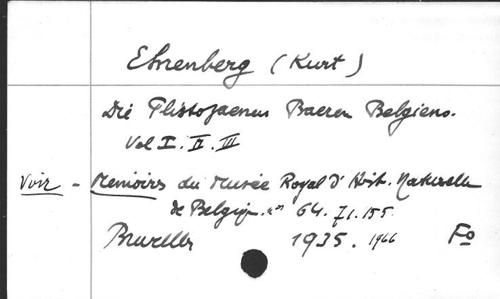 Ehrenberg (Kurt)
Die Plistozaenen Baeren Belgiens.
Vol I. II. III
Voir - Memoires du Musée Royal d'Hist. Naturelle
de Belgiq. nos 64. 71. 155
Bruxelles 1935. 1966 Fo